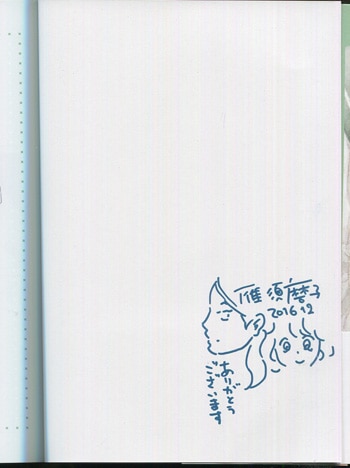 雁須磨子
2016.12
ありがとう
ございます